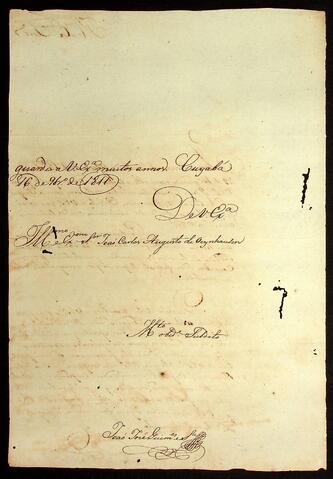 guarde a V. Exª. muitos annos. Cuyabá
16 de 9bro de 1811
De V. Exª
Illmo e Exmo Snr João Carlos Augusto de Oeynhausen
Mto obdte Subdito
João José Guimes e Sª